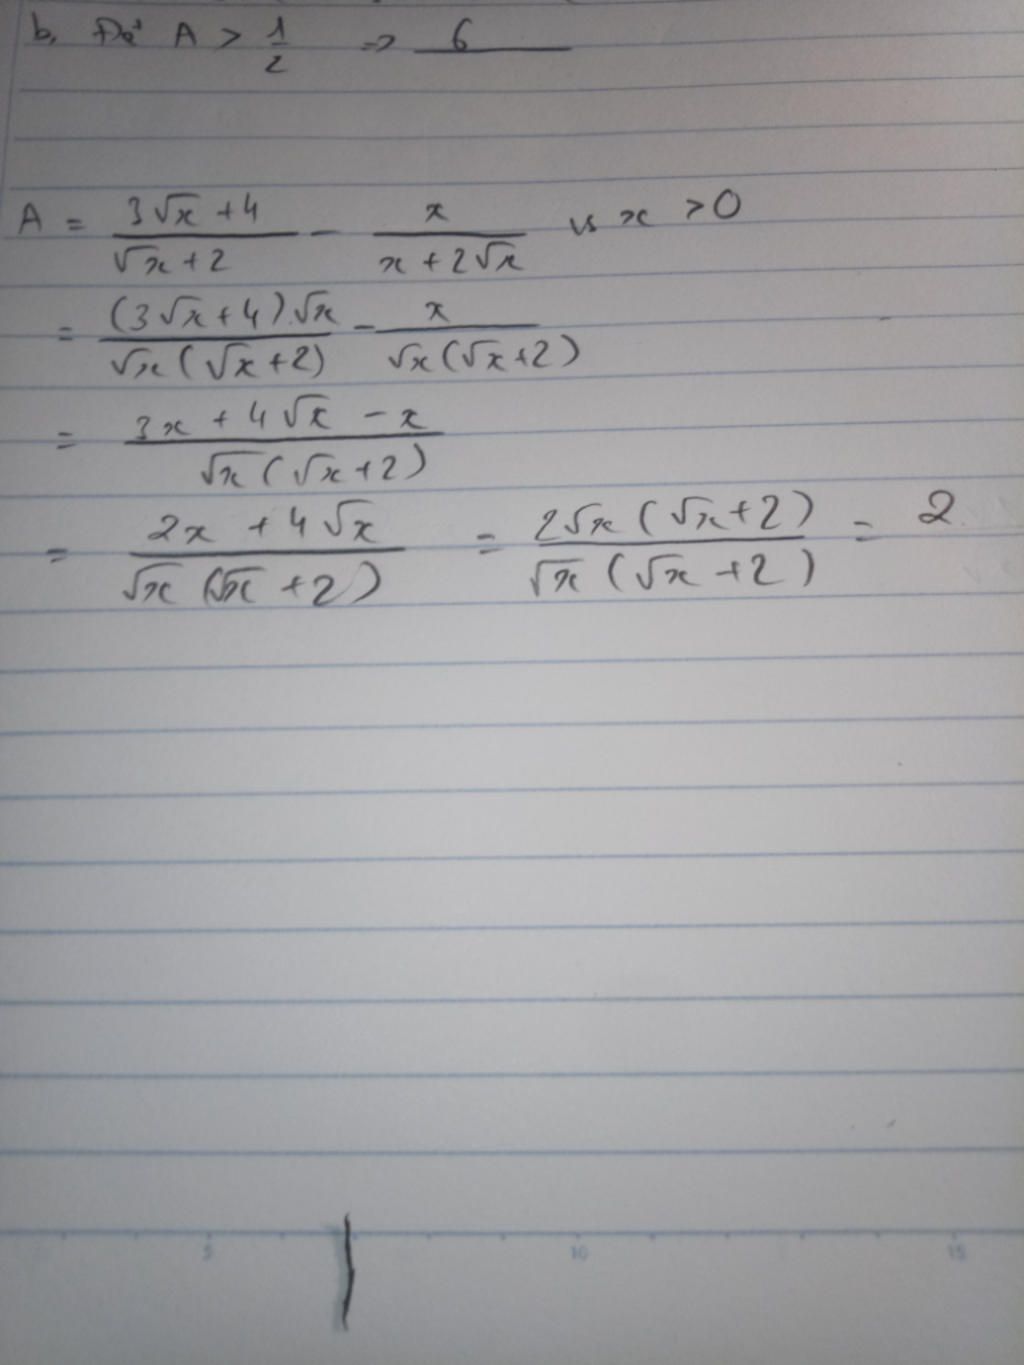 b, Để A > 1/2 => 6/
A = (3√x + 4)/(√x + 2) - x/(x + 2√x) vs x > 0
= ((3√x + 4).√x)/(√x(√x + 2)) - x/(√x(√x + 2))
= (3x + 4√x - x)/(√x(√x + 2))
= (2x + 4√x)/(√x(√x + 2)) = (2√x(√x + 2))/(√x(√x + 2)) = 2
5 10 15